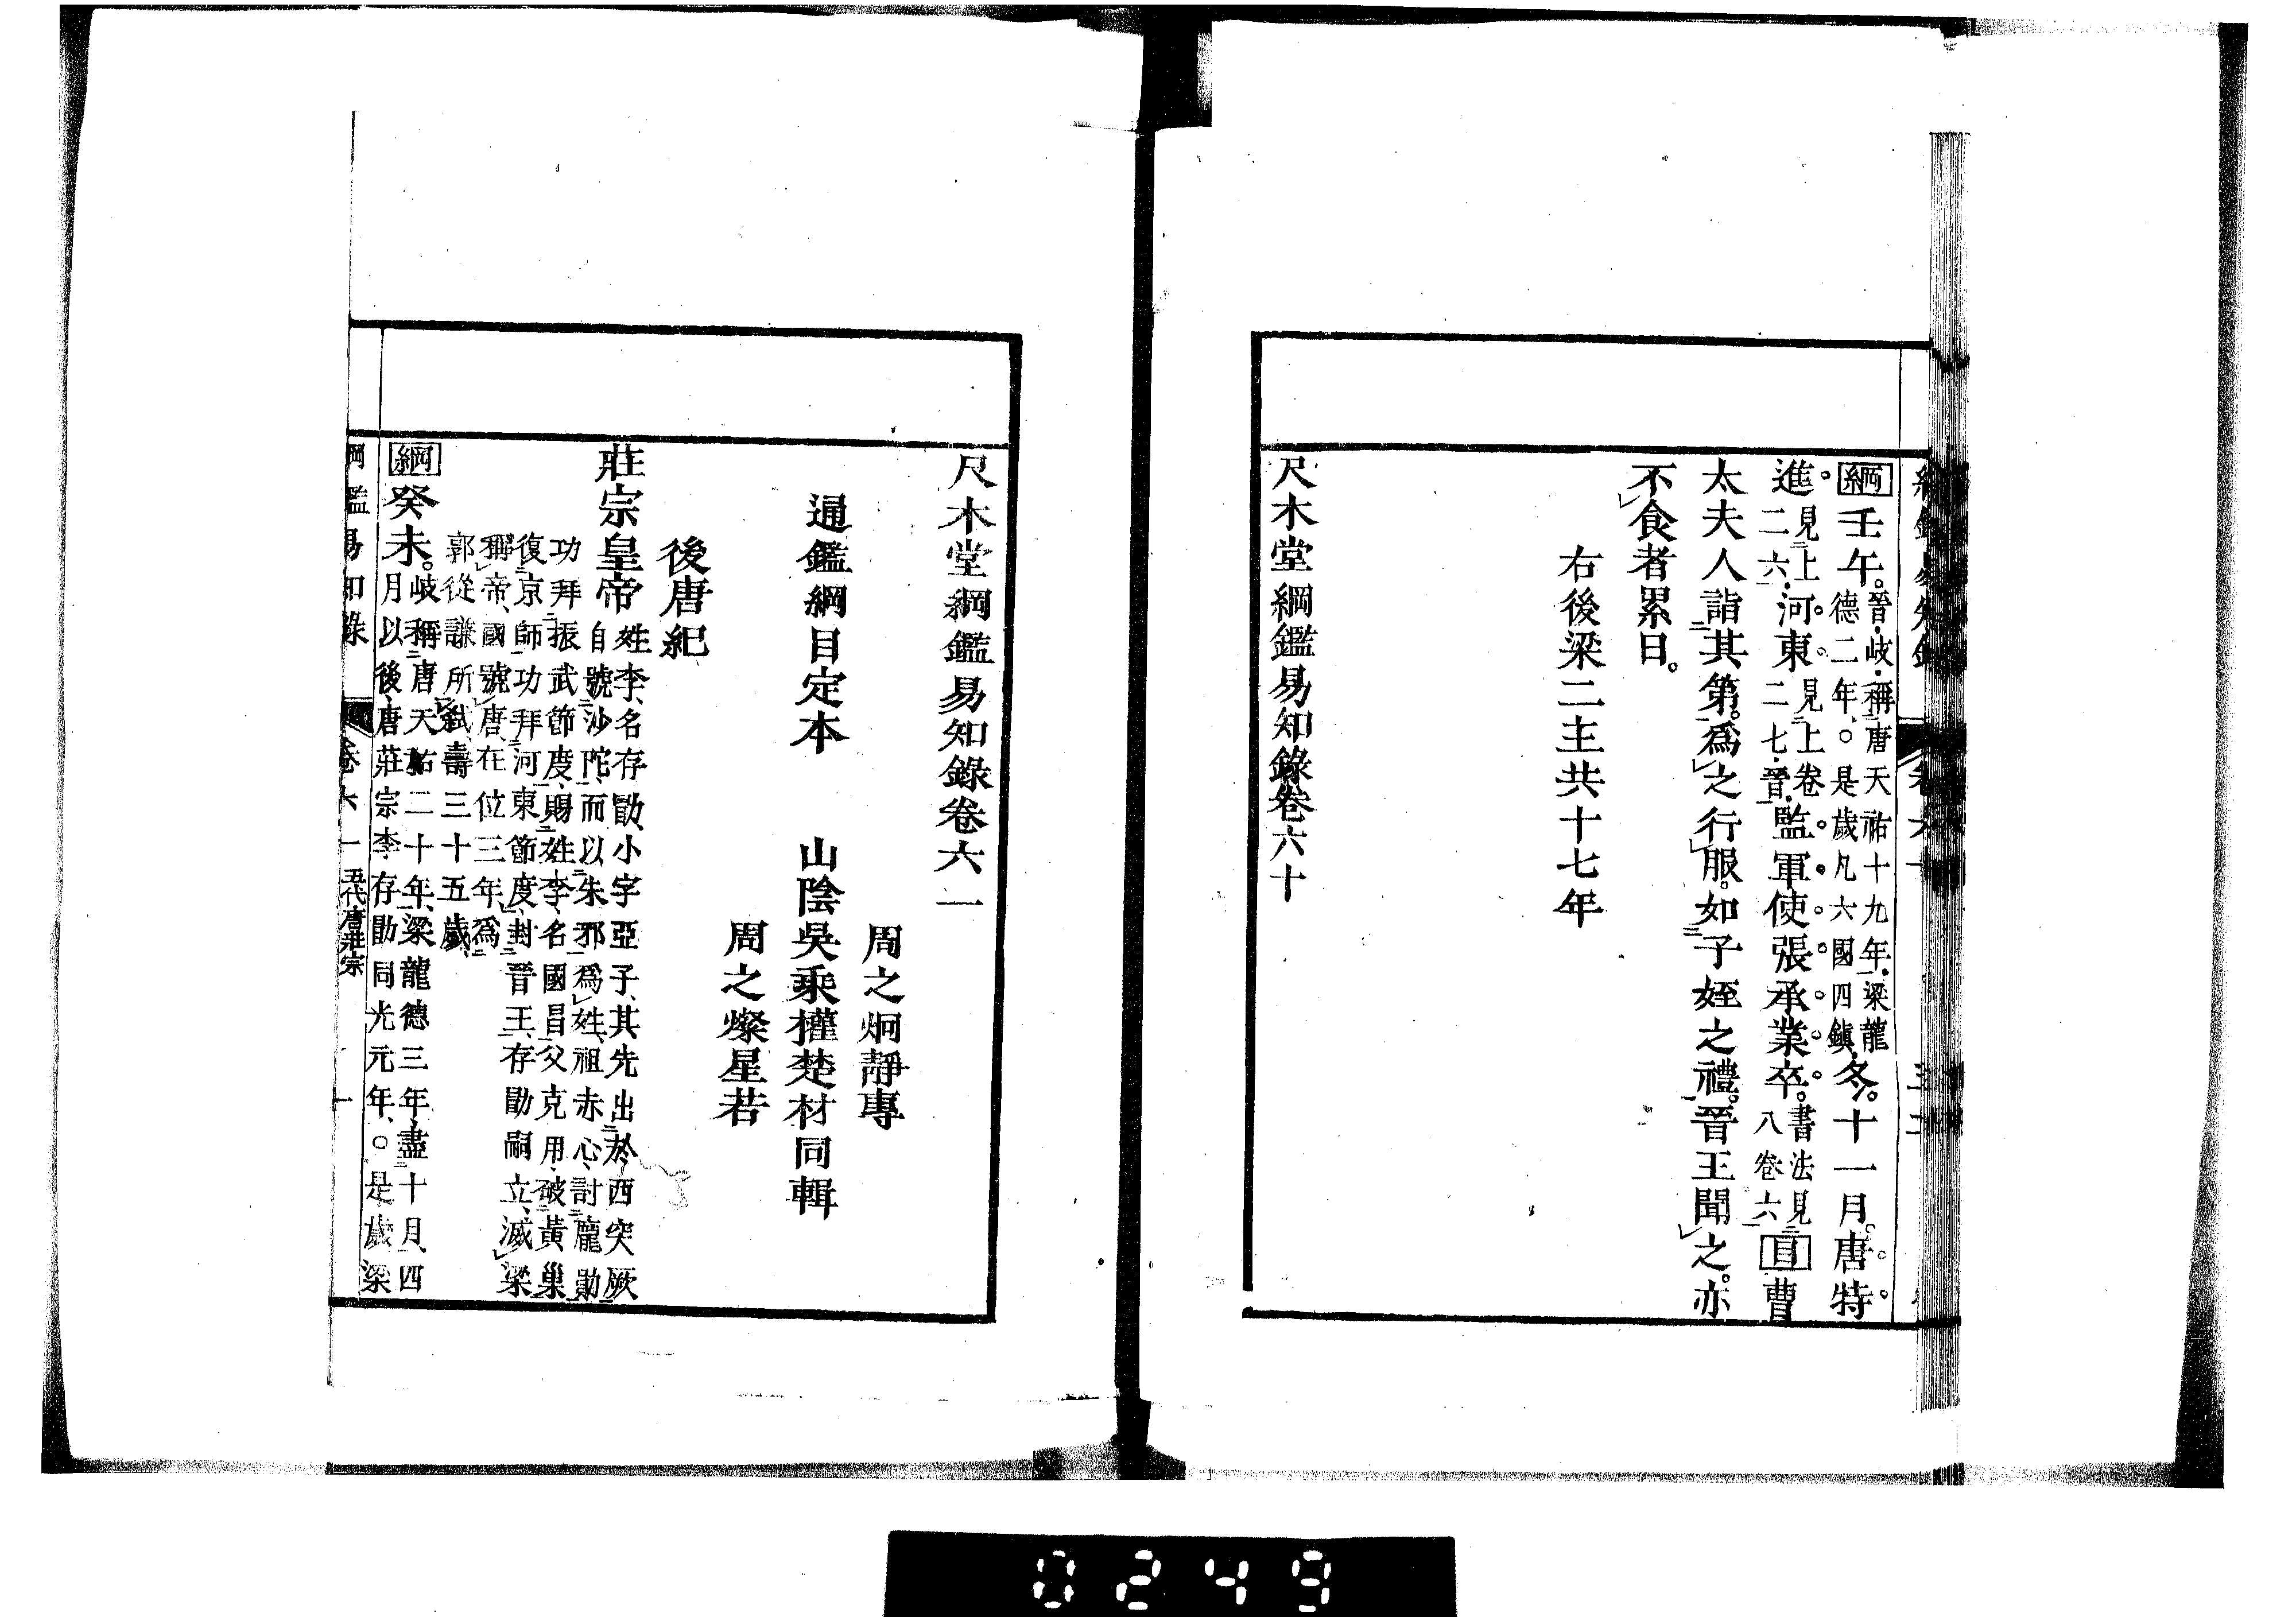 綱壬午。晉岐稱唐天祐十九年梁龍德二年。○是歲凡六國四鎮。冬。十一月。唐特
進見上二六河東見上卷二七晉監軍使張承業卒。書法見八卷六目曹
太夫人詣其第。爲之行服。如子姪之禮。晉王聞之。亦
不食者累日。
右後梁二主共十七年
尺木堂綱鑑易知錄卷六十
尺木堂綱鑑易知錄卷六一
周之炯靜專
通鑑綱目定本 山陰吳乘權楚材同輯
周之燦星若
後唐紀
莊宗皇帝姓李、名存勖、小字亞子、其先出於西突厥
自號沙陀、而以朱邪爲姓、祖赤心、討龐勛
功拜振武節度、賜姓李、名國昌、父克用、破黃巢
復京師、功拜河東節度、封晉王、存勖嗣立、滅梁
稱帝、國號唐、在位三年、爲
郭從謙所弒、壽三十五歲、
綱癸未。岐稱唐天祐二十年、梁龍德三年、盡十月、四
月以後、唐莊宗李存勖同光元年、○是歲梁
綱鑑易知錄 卷六一 五代唐莊宗 一
0249